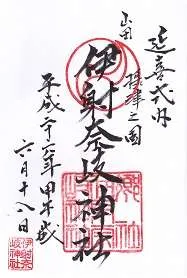 延喜式内
山田
摂津之國
伊射奈岐神社
平成二十六年甲午歳
六月十八日
伊射奈岐神社